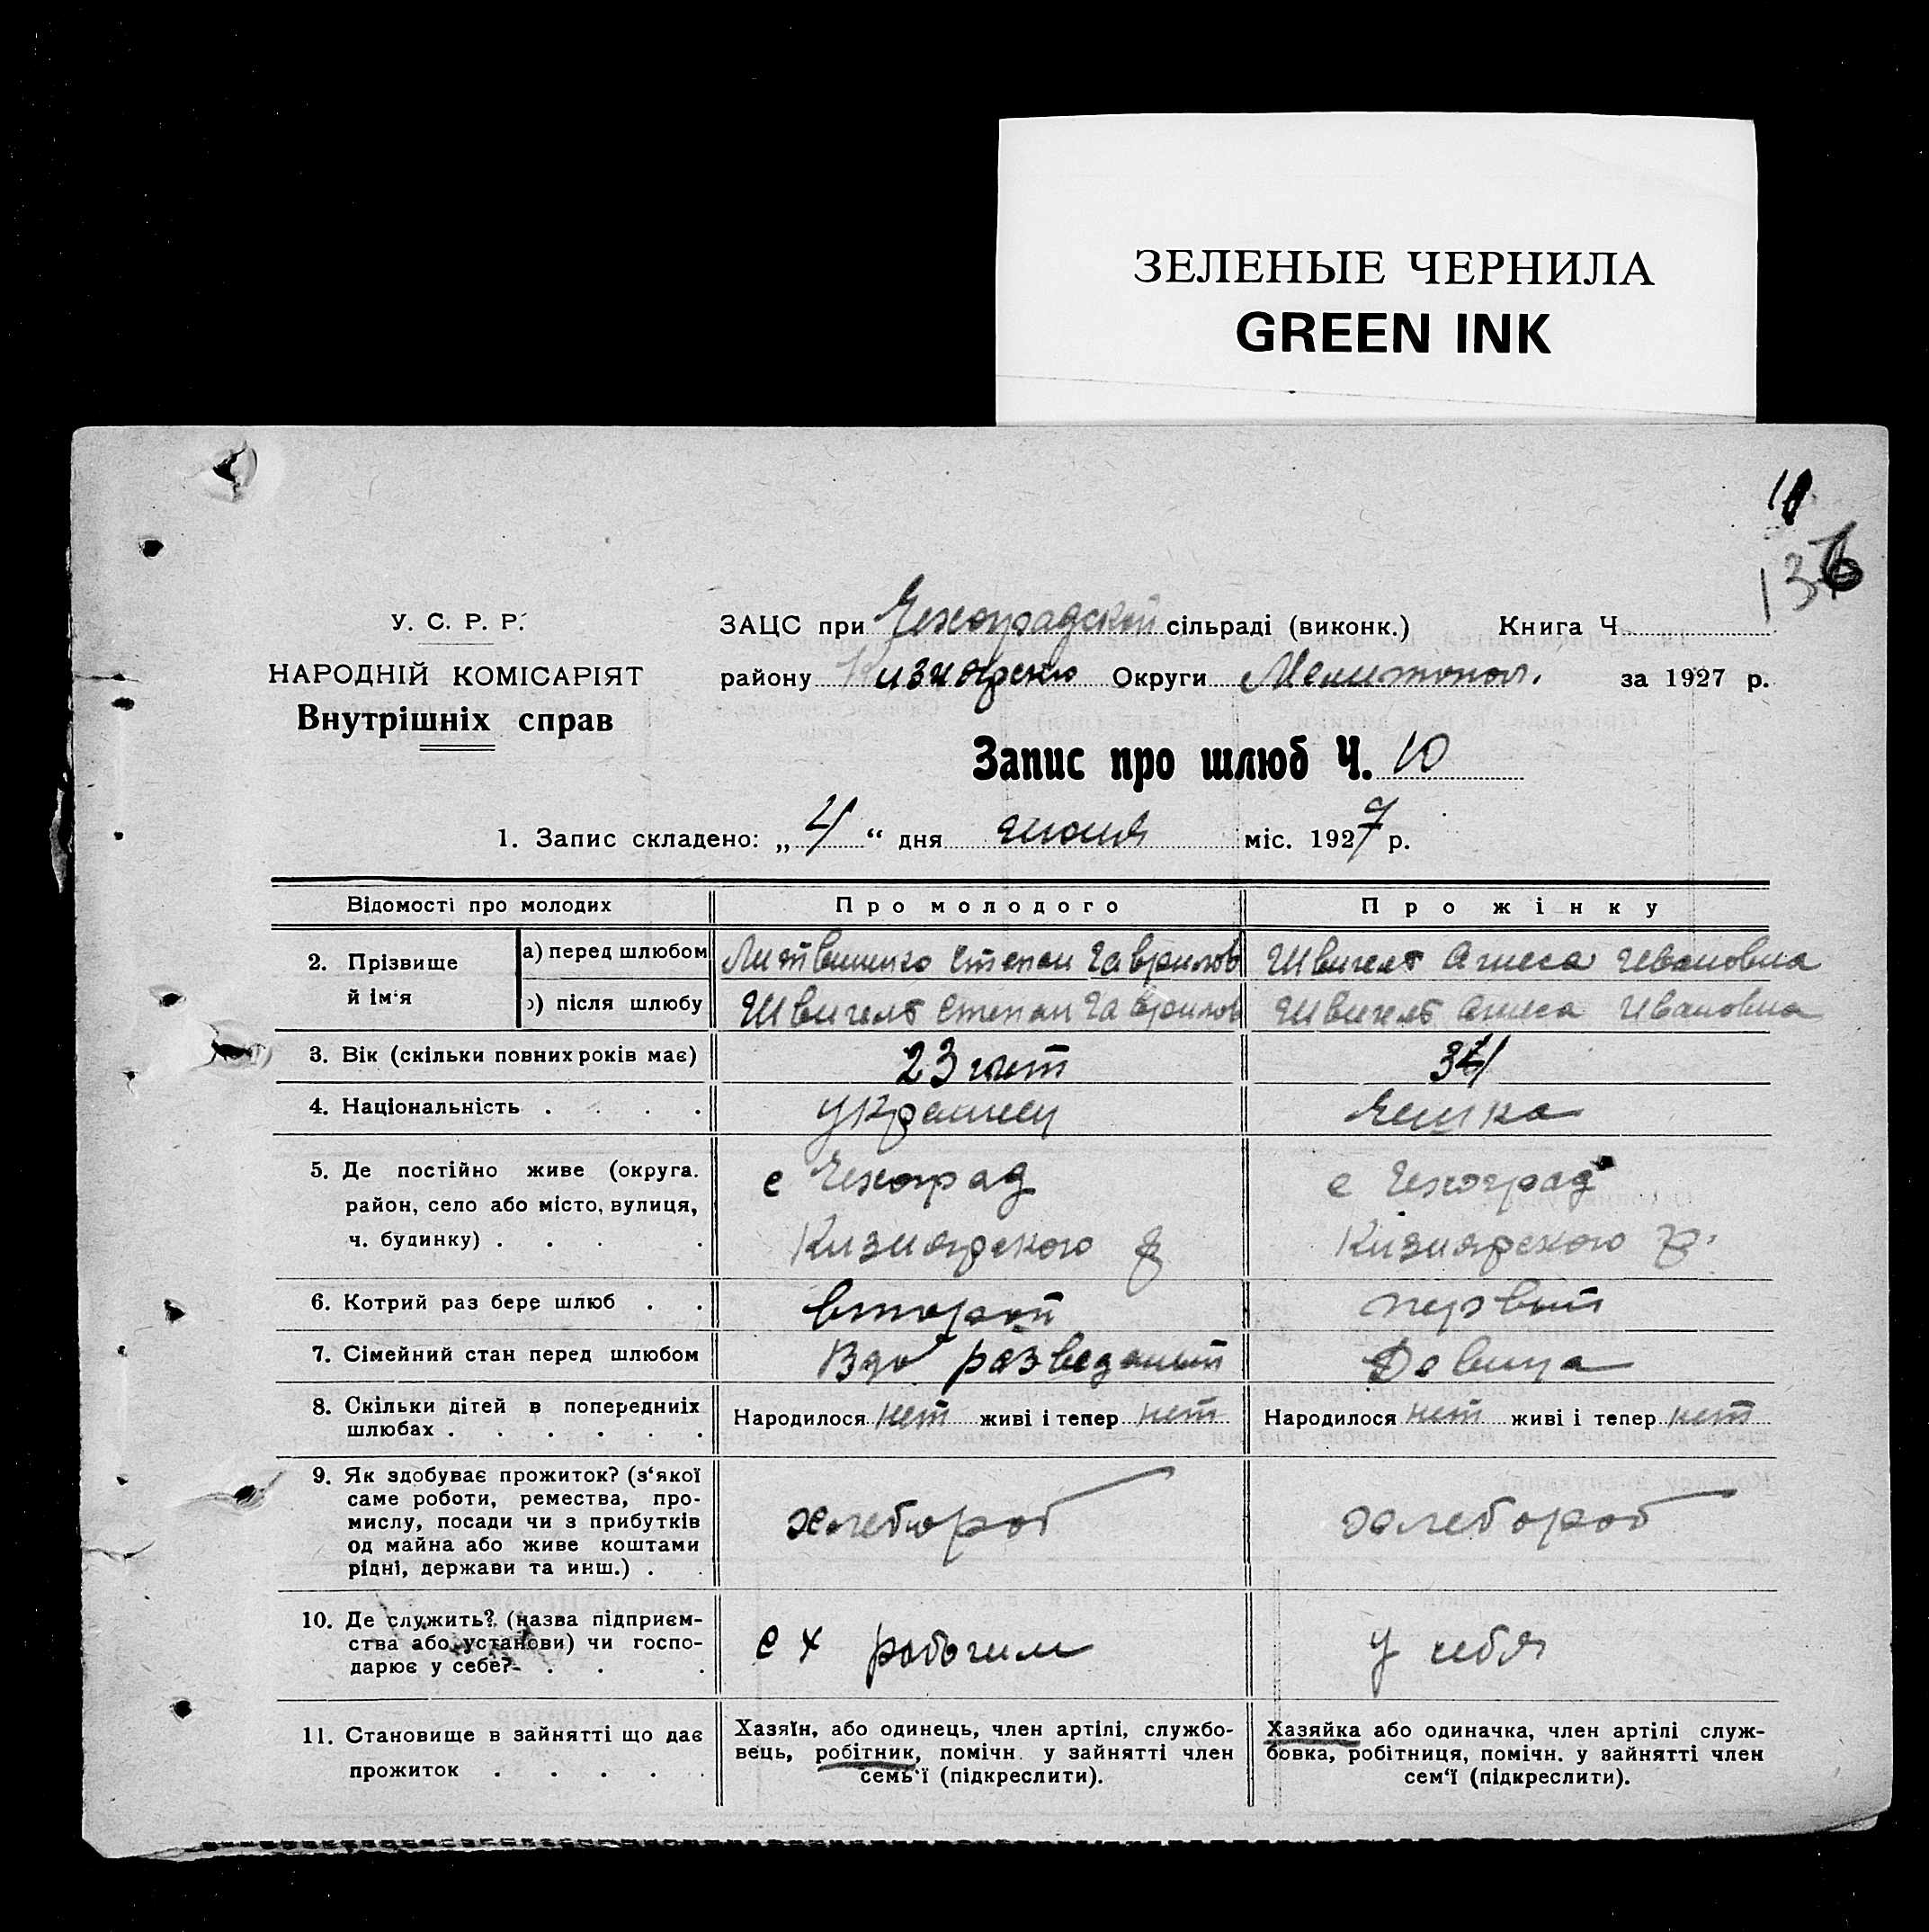 ЗЕЛЕНЫЕ ЧЕРНИЛА
GREEN INK
10
136
У. С. Р. Р.
НАРОДНІЙ КОМІСАРІЯТ
Внутрішніх справ
ЗАЦС при Чехоградской сільраді (виконк.) Книга Ч.
району Кизиярско Округи Мелитопол. за 1927 р.
Запис про шлюб Ч. 10
1. Запис складено: „ 4 “ дня июня міс. 1927 р.
Відомості про молодих Про молодого Про жінку
2. Прізвище й ім‘я
а) перед шлюбом Литвиненко Степан Гаврилов Швигель Агнеса Ивановна
б) після шлюбу Швигель Степан Гаврилов Швигель Агнеса Ивановна
3. Вік (скільки повних років має) 23 лет 34
4. Національність . . . . украинец Чешка
5. Де постійно живе (округа. с Чехоград с Чехоград
район, село або місто, вулиця,
ч. будинку) . . . . Кизиярского р Кизиярского р.
6. Котрий раз бере шлюб . . второй первый
7. Сімейний стан перед шлюбом Вдо разведаный Девица
8. Скільки дітей в попередниіх
шлюбах . . . . . . Народилося нет живі і тепер нет Народилося нет живі і тепер нет
9. Як здобуває прожиток? (з‘якої
саме роботи, ремества, про-
мислу, посади чи з прибутків
од майна або живе коштами
рідні, держави та инш.) . . хлебороб хлебороб
10. Де служить? (назва підприєм-
ства або установи) чи госпо-
дарює у себе? . . . с х рабочим у себя
11. Становище в зайнятті що дає
прожиток . . . . .
Хазяїн, або одинець, член артілі, службо-
вець, робітник, помічн. у зайнятті член
семь‘ї (підкреслити).
Хазяйка або одиначка, член артілі служ-
бовка, робітниця, помічн. у зайнятті член
сем‘ї (підкреслити).